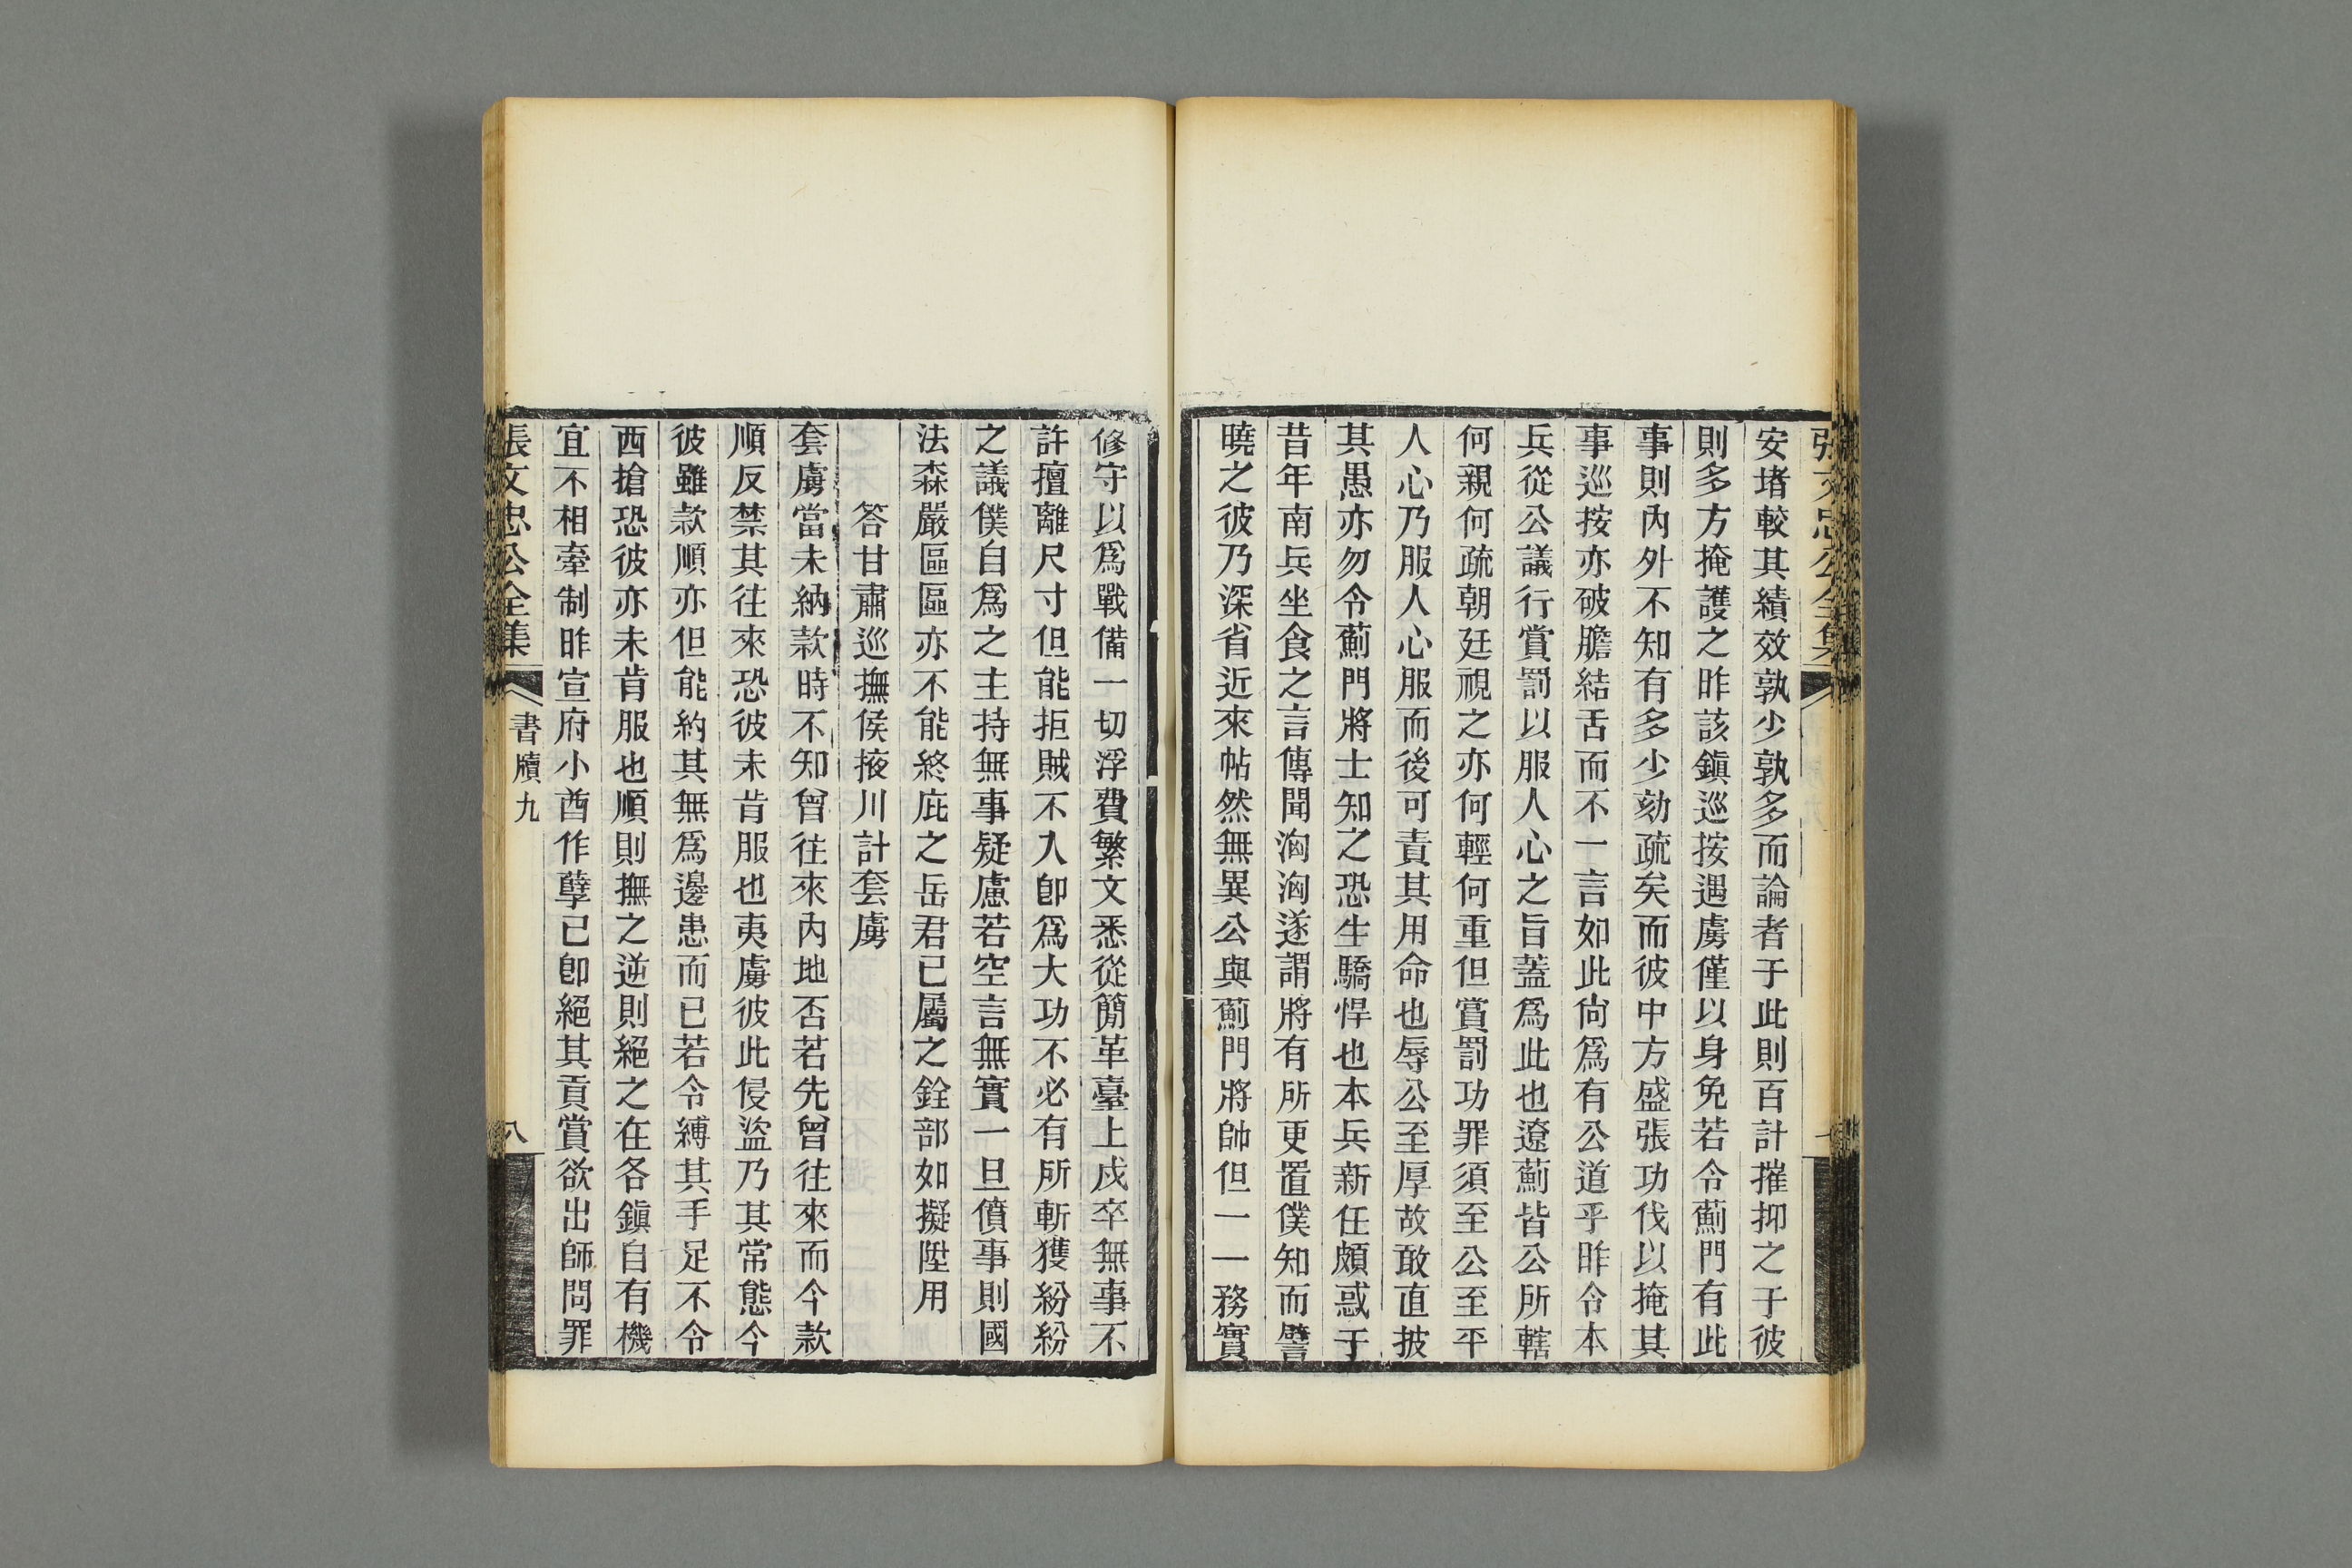 張文忠公全集
安堵較其績效孰少孰多而論者于此則百計摧抑之于彼
則多方掩護之昨該鎭巡按遇虜僅以身免若令薊門有此
事則內外不知有多少劾疏矣而彼中方盛張功伐以掩其
事巡按亦破膽結舌而不一言如此尙爲有公道乎昨令本
兵從公議行賞罰以服人心之旨蓋爲此也遼薊皆公所轄
何親何疏朝廷視之亦何輕何重但賞罰功罪須至公至平
人心乃服人心服而後可責其用命也辱公至厚故敢直披
其愚亦勿令薊門將士知之恐生驕悍也本兵新任頗惑于
昔年南兵坐食之言傳聞洶洶遂謂將有所更置僕知而譬
曉之彼乃深省近來帖然無異公與薊門將帥但一一務實
修守以爲戰備一切浮費繁文悉從簡革臺上戍卒無事不
許擅離尺寸但能拒賊不入卽爲大功不必有所斬獲紛紛
之議僕自爲之主持無事疑慮若空言無實一旦僨事則國
法森嚴區區亦不能終庇之岳君已屬之銓部如擬陞用
答甘肅巡撫侯掖川計套虜
套虜當未納款時不知曾往來內地否若先曾往來而今款
順反禁其往來恐彼未肯服也夷虜彼此侵盜乃其常態今
彼雖款順亦但能約其無爲邊患而已若令縛其手足不令
西搶恐彼亦未肯服也順則撫之逆則絕之在各鎭自有機
宜不相牽制昨宣府小酋作孽已卽絕其貢賞欲出師問罪
張文忠公全集
書牘九
八